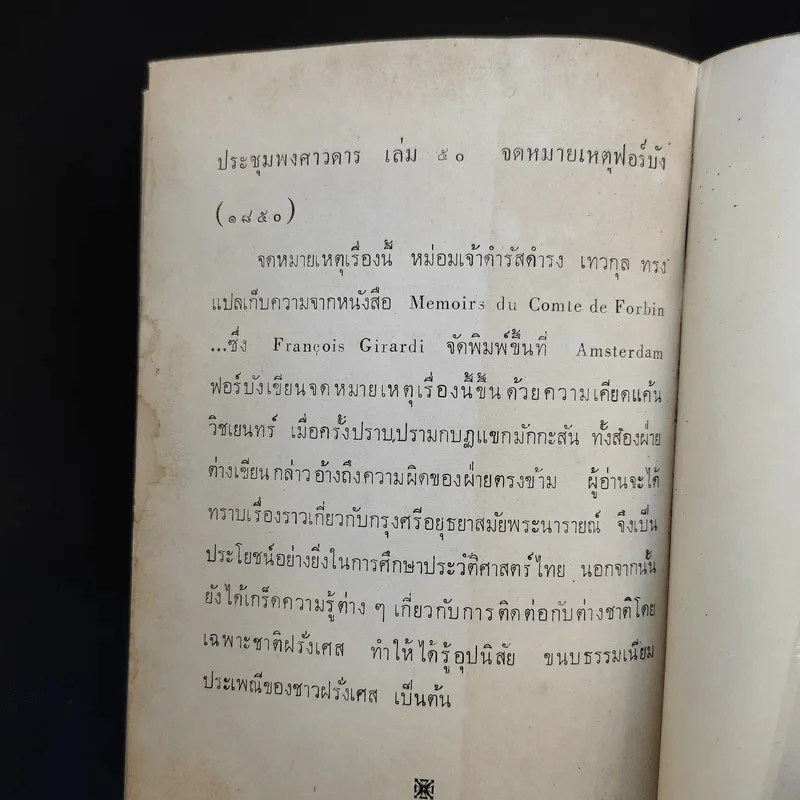 ประชุมพงศาวดาร เล่ม ๕๐ จดหมายเหตุฟอร์บัง
(๑๘๕๐)
จดหมายเหตุเรื่องนี้ หม่อมเจ้าดำรัสดำรง เทวกุล ทรง
แปลเก็บความจากหนังสือ Memoirs du Comte de Forbin
...ซึ่ง François Girardi จัดพิมพ์ขึ้นที่ Amsterdam
ฟอร์บังเขียนจดหมายเหตุเรื่องนี้ขึ้นด้วยความเคียดแค้น
วิชเยนทร์ เมื่อครั้งปราบปรามกบฏแขกมักกะสัน ทั้งสองฝ่าย
ต่างเขียนกล่าวอ้างถึงความผิดของฝ่ายตรงข้าม ผู้อ่านจะได้
ทราบเรื่องราวเกี่ยวกับกรุงศรีอยุธยาสมัยพระนารายณ์ จึงเป็น
ประโยชน์อย่างยิ่งในการศึกษาประวัติศาสตร์ไทย นอกจากนั้น
ยังได้เกร็ดความรู้ต่าง ๆ เกี่ยวกับการติดต่อกับต่างชาติโดย
เฉพาะชาติฝรั่งเศส ทำให้ได้รู้อุปนิสัย ขนบธรรมเนียม
ประเพณีของชาวฝรั่งเศส เป็นต้น